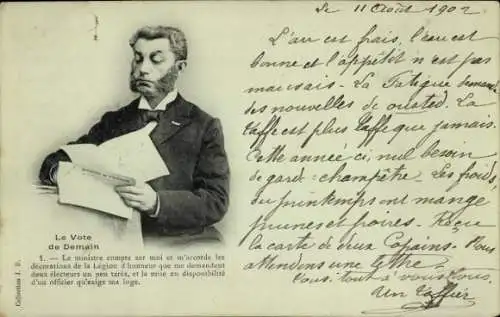 Le 11 Août 1902
L'air est frais, l'eau est
bonne et l'appétit n'est pas
mauvais - La Fatigue demande
des nouvelles de ousted. La
Gaffe est plus Gaffe que jamais.
Cette année ci, nul besoin
de garde-champêtre. Les froids
du printemps ont mangé
prunes et poires. Reçu
la carte de deux Copains. Nous
attendons une lettre.
Tout à vous tous.
Un Gaffier
Le Vote
de Demain
1. - Le ministre compte sur moi et m'accorde les
décorations de la Légion d'honneur que me demandent
deux électeurs un peu tarés, et la mise en disponibilité
d'un officier qu'exige ma loge.
Collection J. B.